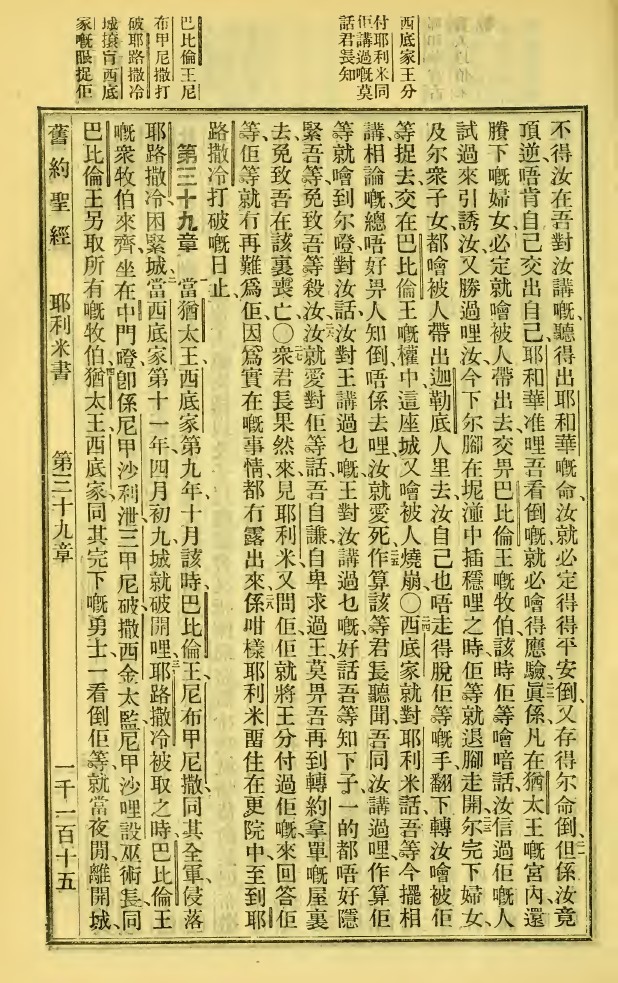 西底家王分
付耶利米同
佢講過嘅莫
話君長知
巴比倫王尼
布甲尼撒打
破耶路撒冷
城㨢盲西底
家嘅眼捉佢
不得汝在吾對汝講嘅、聽得出耶和華嘅命、汝就必定得得平安倒、又存得尔命倒、但係汝竟
頂逆、唔肯自己交出自己、耶和華准哩吾看倒嘅、就必噲得應驗、眞係凡在猶太王嘅宮內、還
賸下嘅婦女、必定就噲被人帶出去交畀巴比倫王嘅牧伯、該時佢等噲喑話、汝信過佢嘅人
試過來引誘汝、又勝過哩汝、今下尔腳在坭湩中插穩哩之時、佢等就退腳走開、尔完下婦女、
及尔衆子女、都噲被人帶出迦勒底人里去、汝自己也唔走得脫佢等嘅手、翻下轉汝噲被佢
等捉去、交在巴比倫王嘅權中、這座城又噲被人燒崩、〇西底家就對耶利米話、吾等今擺相
講相論嘅、總唔好畀人知倒、唔係去哩汝就愛死、作算該等君長聽聞吾同汝講過哩、作算佢
等就噲到尔嶝、對汝話、汝對王講過乜嘅、王對汝講過乜嘅、好話吾等知下子、一的都唔好隱
緊吾等、免致吾等殺汝、汝就愛對佢等話、吾自謙自卑求過王、莫畀吾再到轉約拿單嘅屋裏
去、免致吾在該裏喪亡、〇衆君長果然來見耶利米、又問佢、佢就將王分付過佢嘅、來回答佢
等、佢等就冇再難爲佢、因爲實在嘅事情、都冇露出來、係咁樣耶利米畱住在更院中、至到耶
路撒冷打破嘅日止、
第三十九章 當猶太王西底家第九年十月、該時巴比倫王尼布甲尼撒、同其全軍、侵落
耶路撒冷、困緊城、當西底家第十一年四月初九、城就破開哩、耶路撒冷被取之時、巴比倫王
嘅衆牧伯來、齊坐在中門嶝、卽係尼甲沙利泄、三甲尼破、撒西金太監尼甲沙哩設、巫術長、同
巴比倫王另取所有嘅牧伯、猶太王西底家、同其完下嘅勇士、一看倒佢等、就當夜間離開城、
舊約聖經 耶利米書 第三十九章 一千一百十五